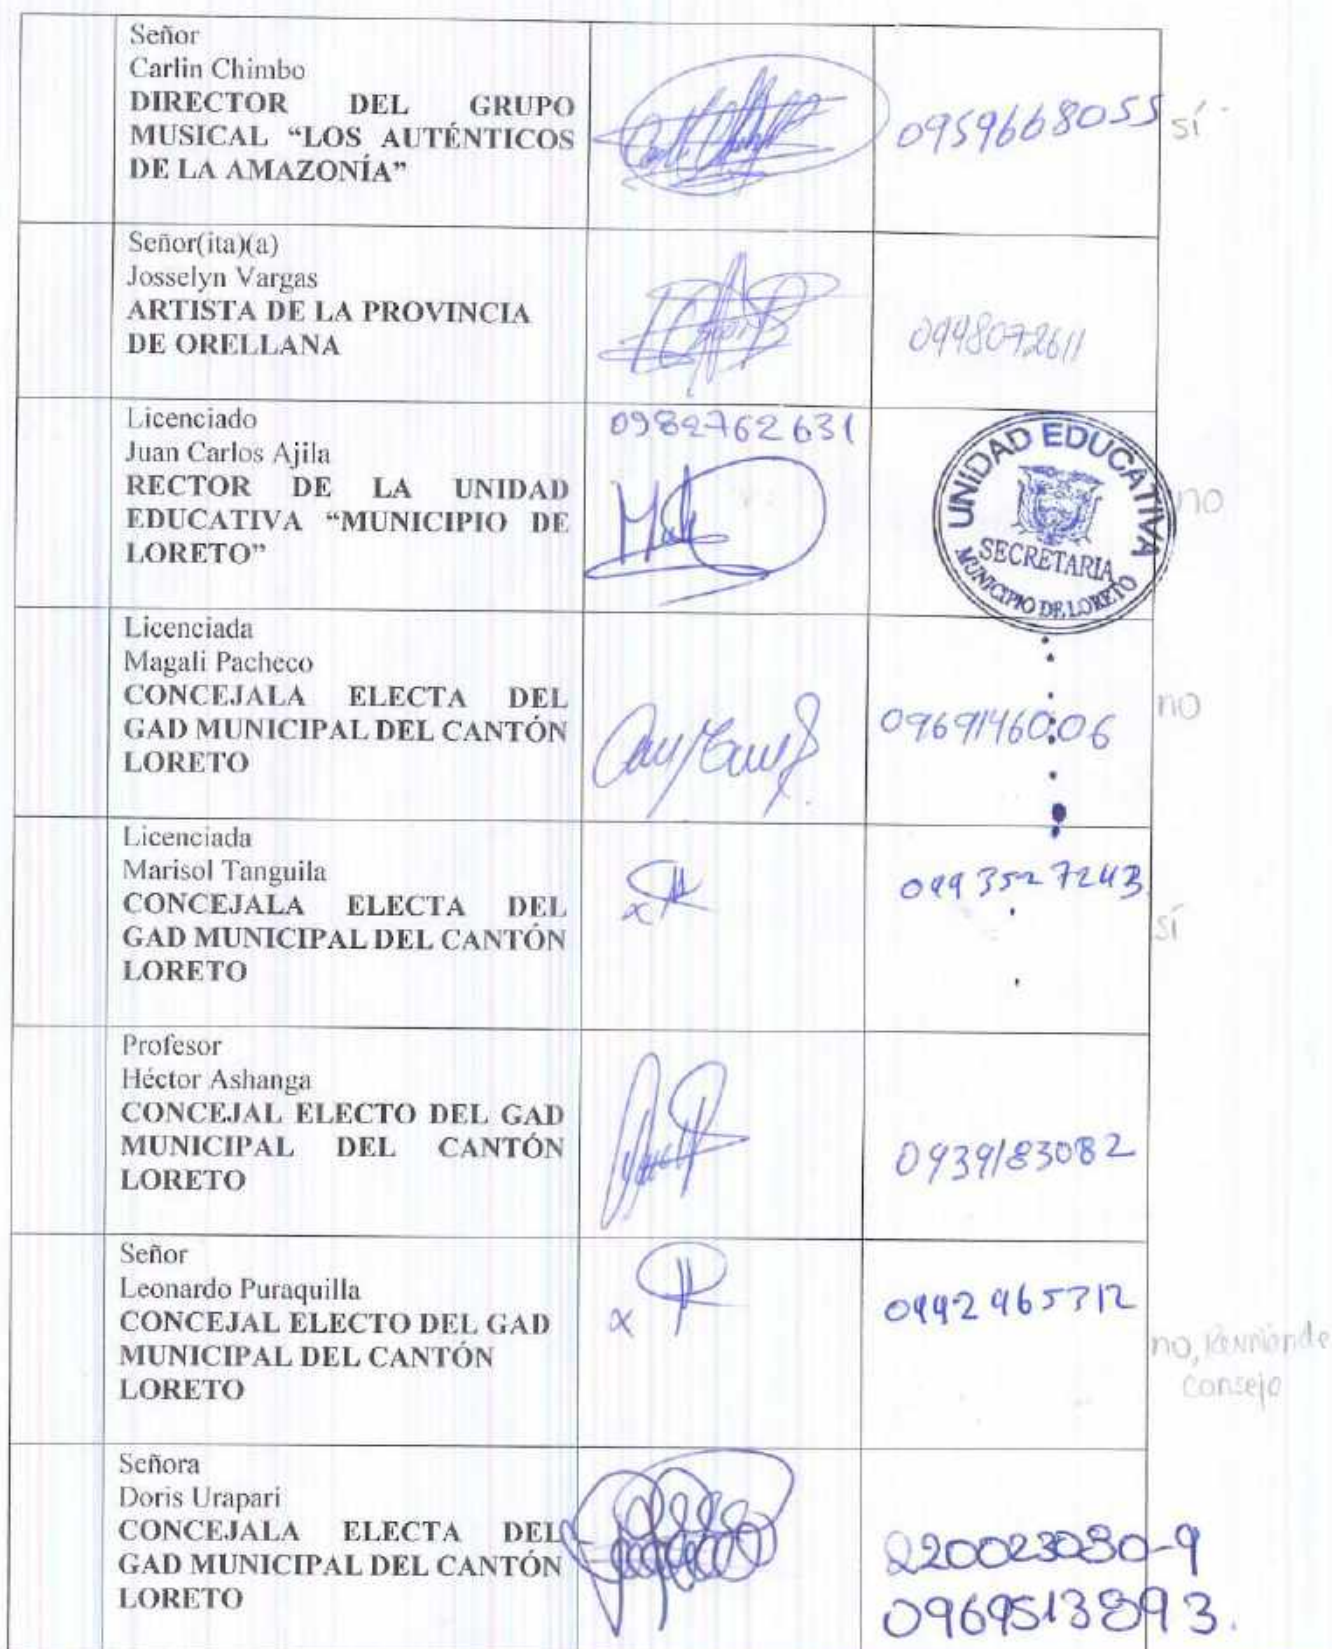 Señor
Carlin Chimbo
DIRECTOR DEL GRUPO
MUSICAL “LOS AUTÉNTICOS
DE LA AMAZONÍA”
0959668055
sí
Señor(ita)(a)
Josselyn Vargas
ARTISTA DE LA PROVINCIA
DE ORELLANA
0998072611
Licenciado
Juan Carlos Ajila
RECTOR DE LA UNIDAD
EDUCATIVA “MUNICIPIO DE
LORETO”
0982762631
UNIDAD EDUCATIVA
SECRETARIA
MUNICIPIO DE LORETO
no
Licenciada
Magali Pacheco
CONCEJALA ELECTA DEL
GAD MUNICIPAL DEL CANTÓN
LORETO
0969146006
no
Licenciada
Marisol Tanguila
CONCEJALA ELECTA DEL
GAD MUNICIPAL DEL CANTÓN
LORETO
0993527243
sí
Profesor
Héctor Ashanga
CONCEJAL ELECTO DEL GAD
MUNICIPAL DEL CANTÓN
LORETO
0939183082
Señor
Leonardo Puraquilla
CONCEJAL ELECTO DEL GAD
MUNICIPAL DEL CANTÓN
LORETO
0992965312
no,
consejo
Señora
Doris Urapari
CONCEJALA ELECTA DEL
GAD MUNICIPAL DEL CANTÓN
LORETO
220023080-9
0969513893.